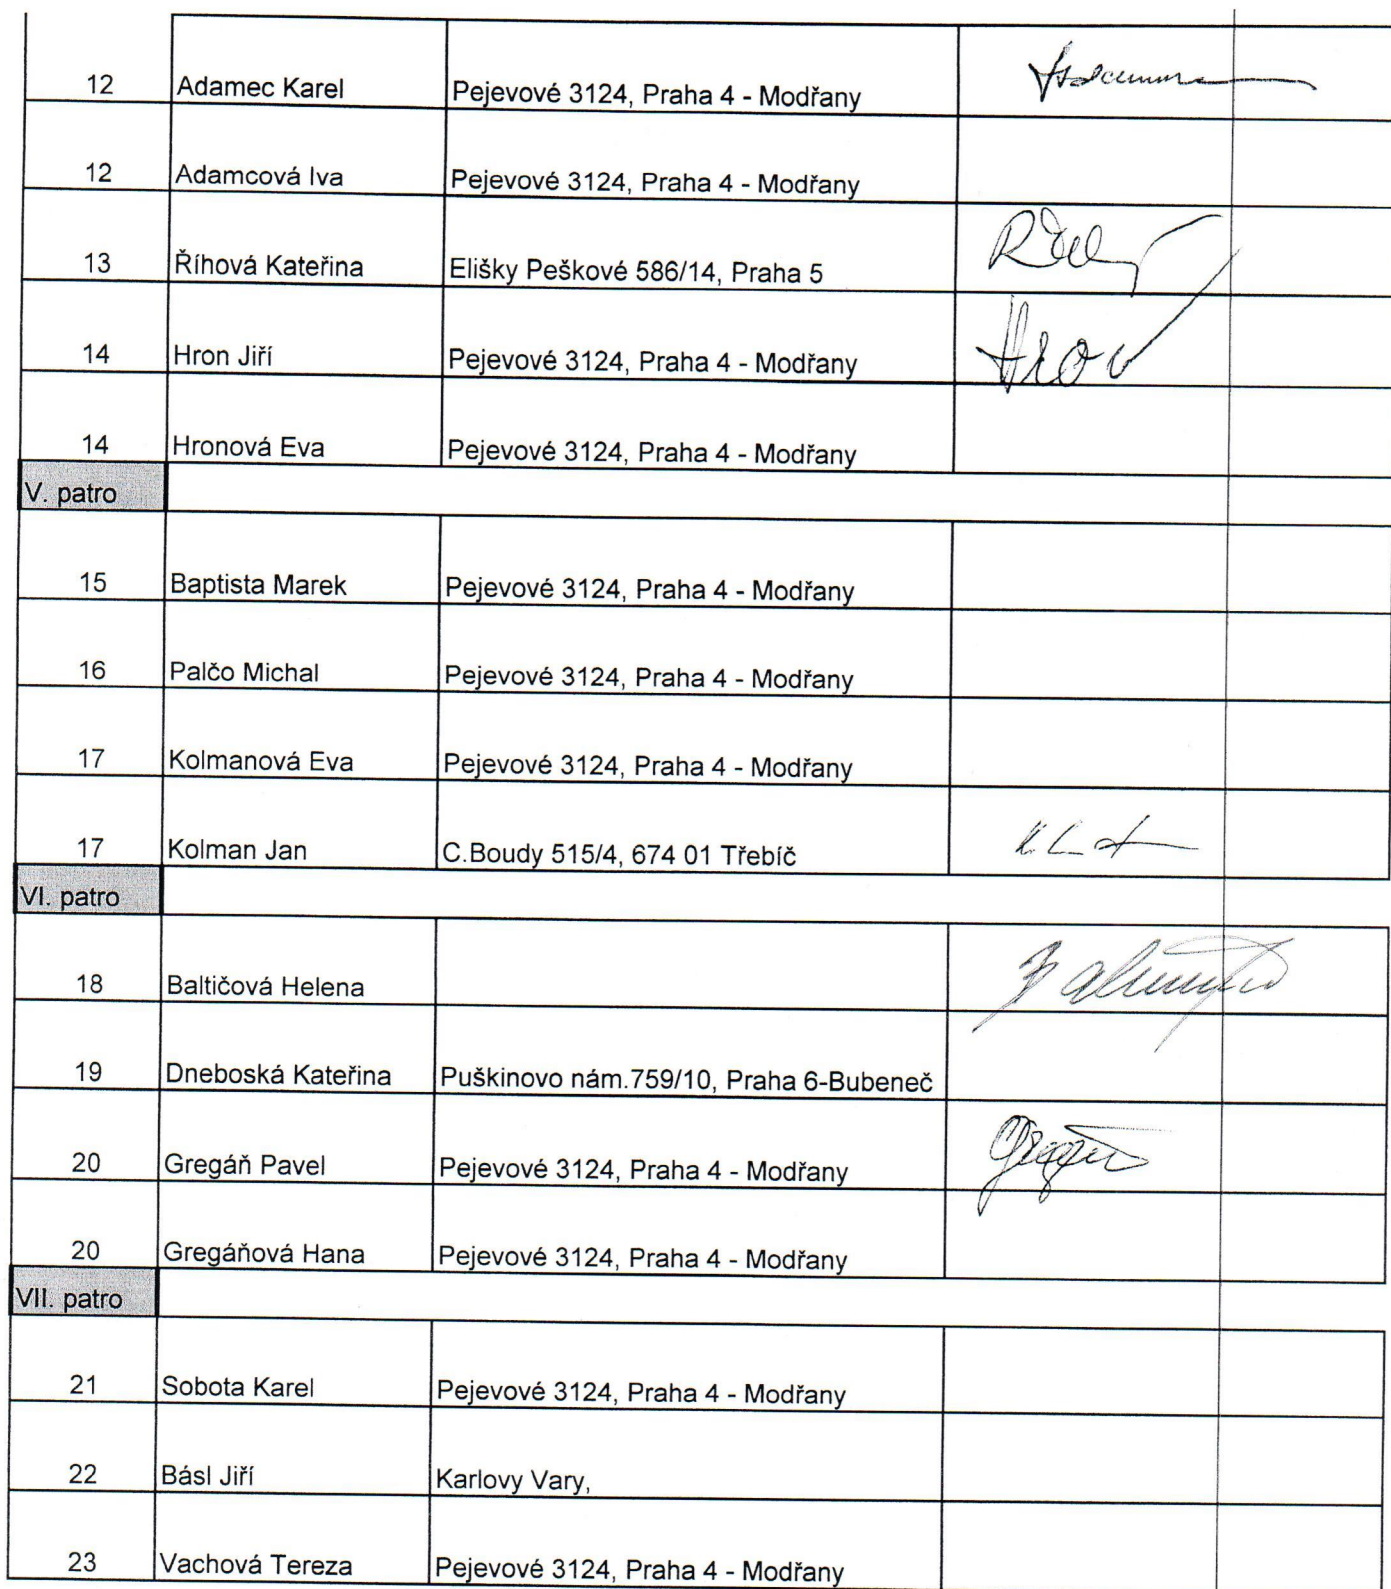 12 Adamec Karel Pejevové 3124, Praha 4 - Modřany
12 Adamcová Iva Pejevové 3124, Praha 4 - Modřany
13 Říhová Kateřina Elišky Peškové 586/14, Praha 5
14 Hron Jiří Pejevové 3124, Praha 4 - Modřany Hron
14 Hronová Eva Pejevové 3124, Praha 4 - Modřany
V. patro
15 Baptista Marek Pejevové 3124, Praha 4 - Modřany
16 Palčo Michal Pejevové 3124, Praha 4 - Modřany
17 Kolmanová Eva Pejevové 3124, Praha 4 - Modřany
17 Kolman Jan C.Boudy 515/4, 674 01 Třebíč
VI. patro
18 Baltičová Helena
19 Dneboská Kateřina Puškinovo nám.759/10, Praha 6-Bubeneč
20 Gregáň Pavel Pejevové 3124, Praha 4 - Modřany
20 Gregáňová Hana Pejevové 3124, Praha 4 - Modřany
VII. patro
21 Sobota Karel Pejevové 3124, Praha 4 - Modřany
22 Básl Jiří Karlovy Vary,
23 Vachová Tereza Pejevové 3124, Praha 4 - Modřany